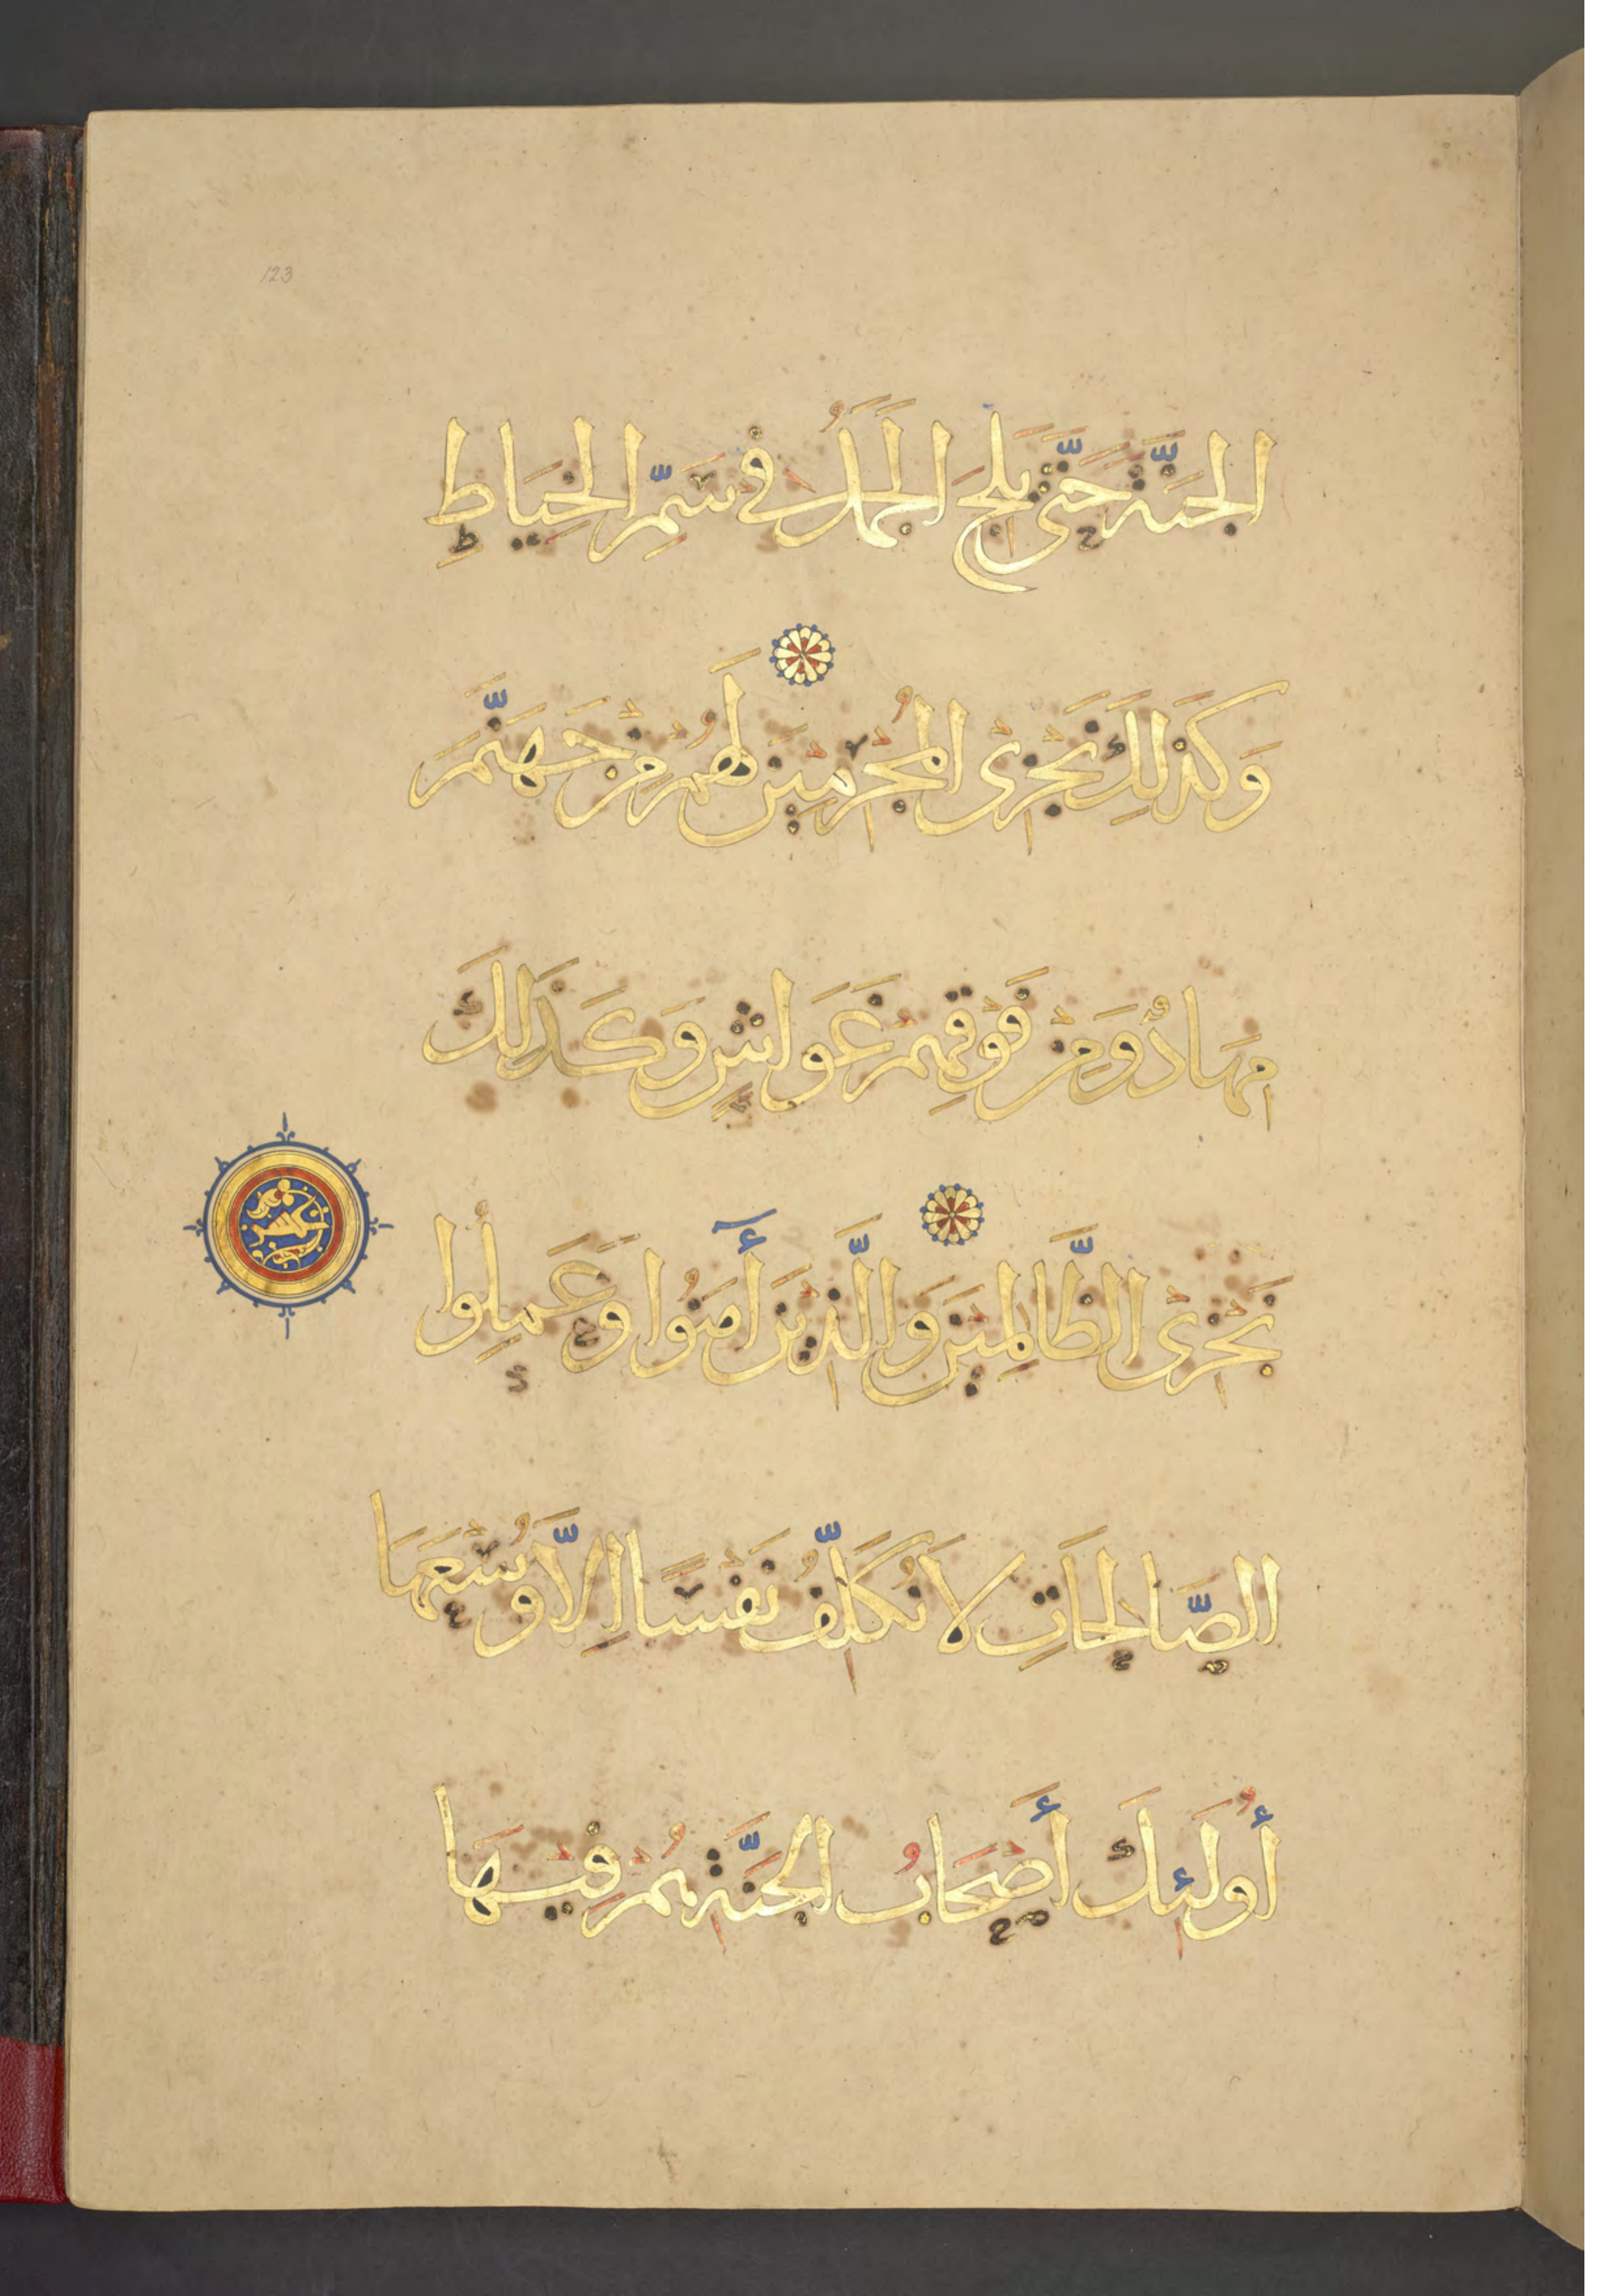 123
الجَنَّةَ حَتَّى يَلِجَ الجَمَلُ فِي سَمِّ الخِيَاطِ
وَكَذَلِكَ نَجْزِى المُجْرِمِيْنَ لَهُمْ مِنْ جَهَنَّمَ
مِهَادٌ وَمِنْ فَوْقِهِمْ غَوَاشٍ وَكَذَلِكَ
نَجْزِىْ الظَّالِمِيْنَ وَالَّذِيْنَ أَمَنُوا وَعَمِلُوا
الصَّالِحَاتِ لَا نُكَلِّفُ نَفْسًا اِلَّا وُسْعَهَا
أُولَئِكَ أَصْحَابُ الجَنَّةِ هُمْ فِيْهَا